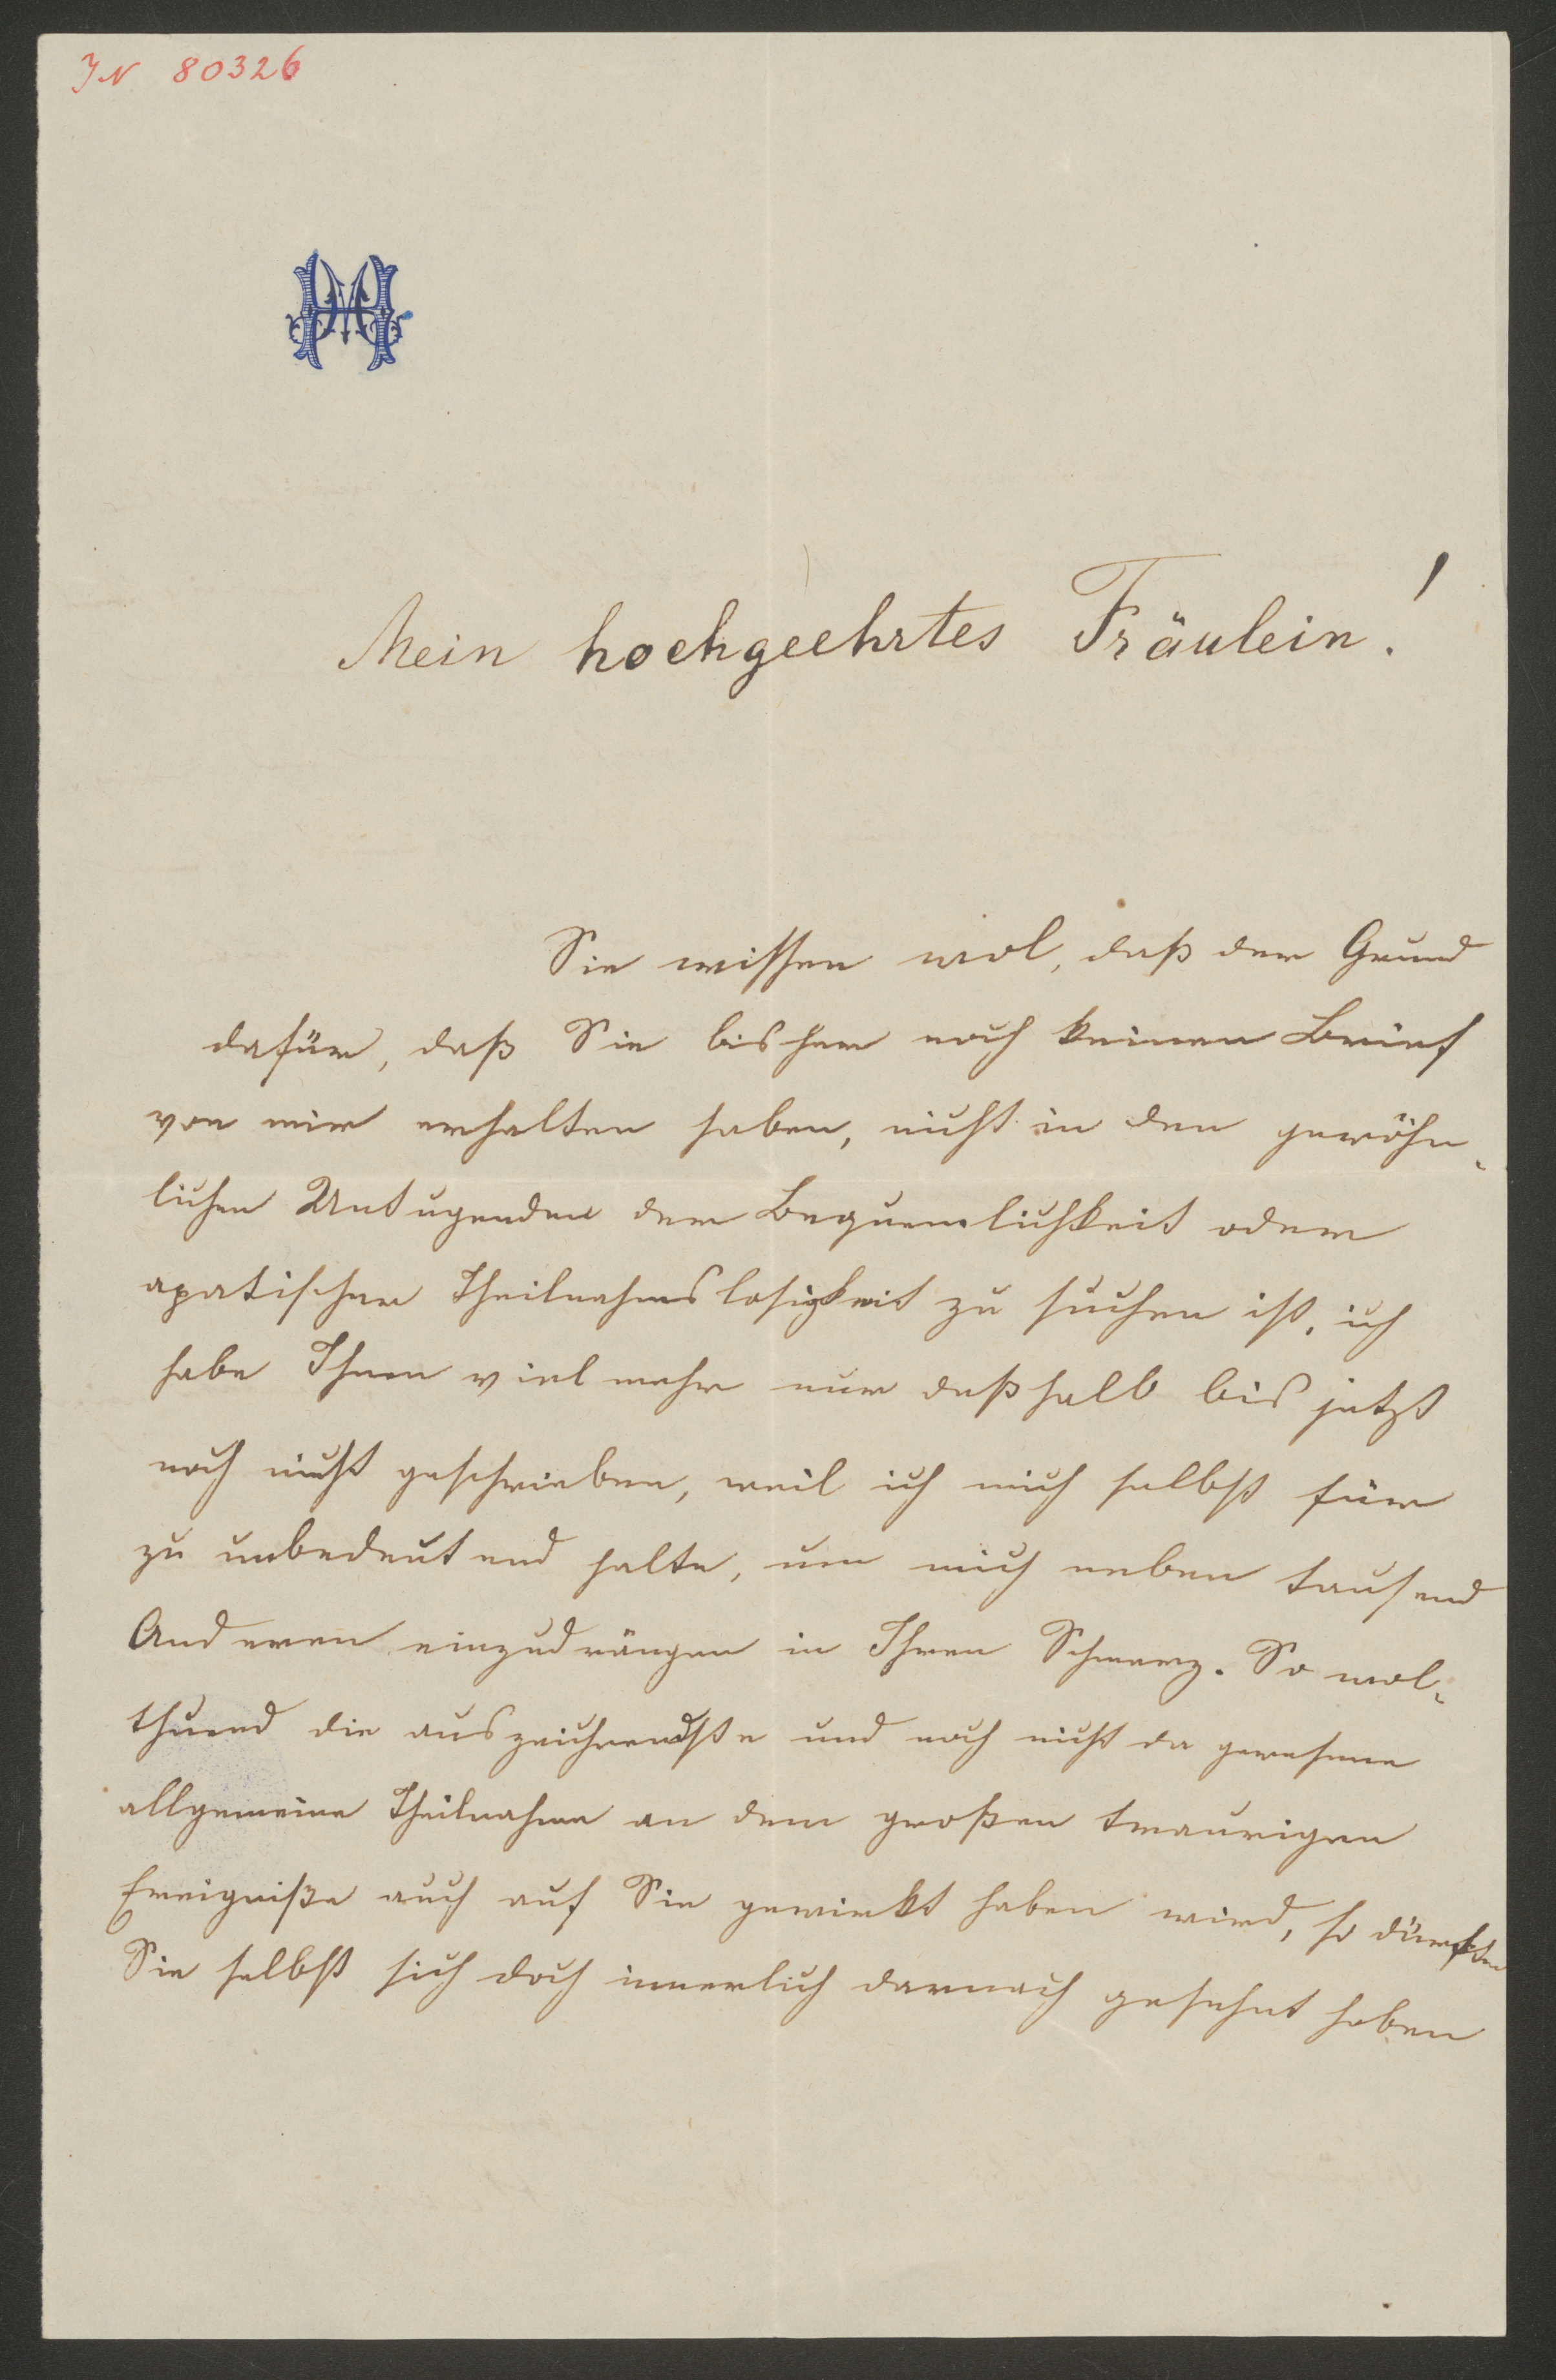 IN 80326
HM
Mein hochgeehrtes Fräulein!
Sie wissen wol, daß der Grund
dafür, daß Sie bisher noch keinen Brief
von mir erhalten haben, nicht in den gewöhn-
lichen Untugenden der Bequemlichkeit oder
apatischer Theilnahmslosigkeit zu suchen ist, ich
habe Ihnen vielmehr nur deßhalb bis jetzt
noch nicht geschrieben, weil ich mich selbst für
zu unbedeutend halte, um mich neben tausend
Anderen einzudrängen in Ihren Schmerz. So wol-
thuend die auszeichnendste und noch nicht da gewesene
allgemeine Theilnahme an dem großen traurigen
Ereigniße auch auf Sie gewirkt haben wird, so dürften
Sie selbst sich doch innerlich darnach gesehnt haben